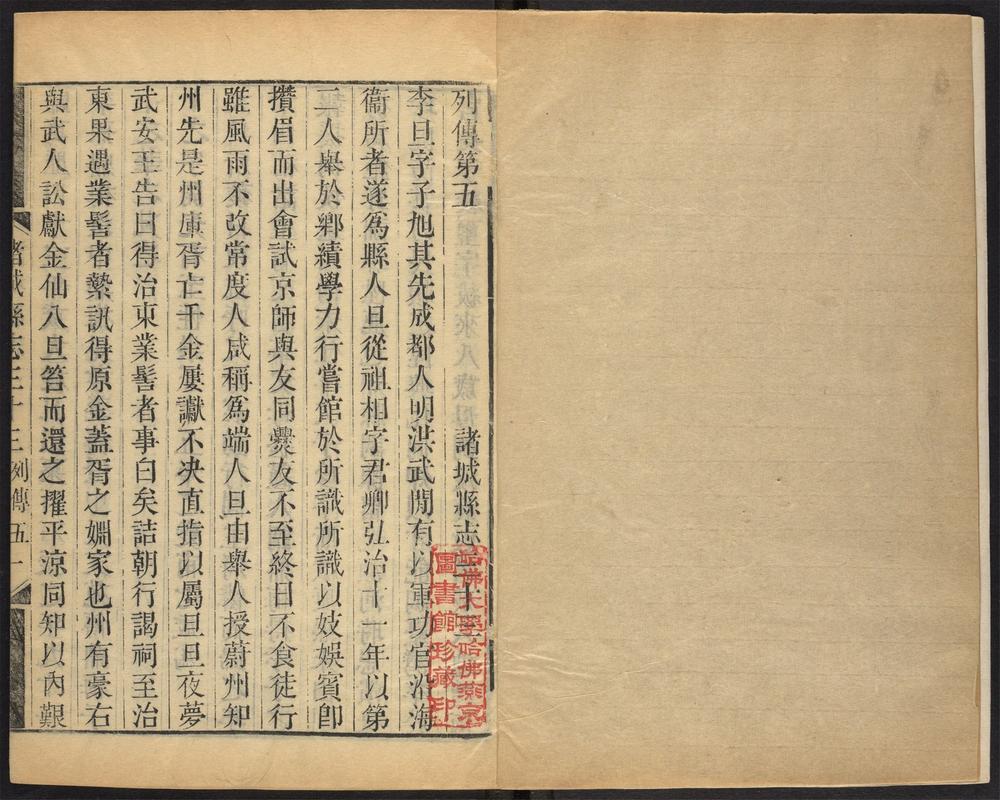 列傳第五 諸城縣志三十三
李旦字子旭其先成都人明洪武閒有以軍功官沿海
衞所者遂爲縣人旦從祖相字君卿弘治十一年以第
二人舉於鄉績學力行嘗館於所識所識以妓娛賓卽
攢眉而出會試京師與友同爨友不至終日不食徒行
雖風雨不改常度人咸稱爲端人旦由舉人授蔚州知
州先是州庫胥亡千金屢讞不決直指以屬旦旦夜夢
武安王告曰得治東業髻者事白矣詰朝行謁祠至治
東果遇業髻者縶訊得原金蓋胥之婣家也州有豪右
與武人訟獻金仙八旦笞而還之擢平涼同知以內艱
諸城縣志三十三 列傳五 一
哈佛大學哈佛燕京
圖書館珍藏印